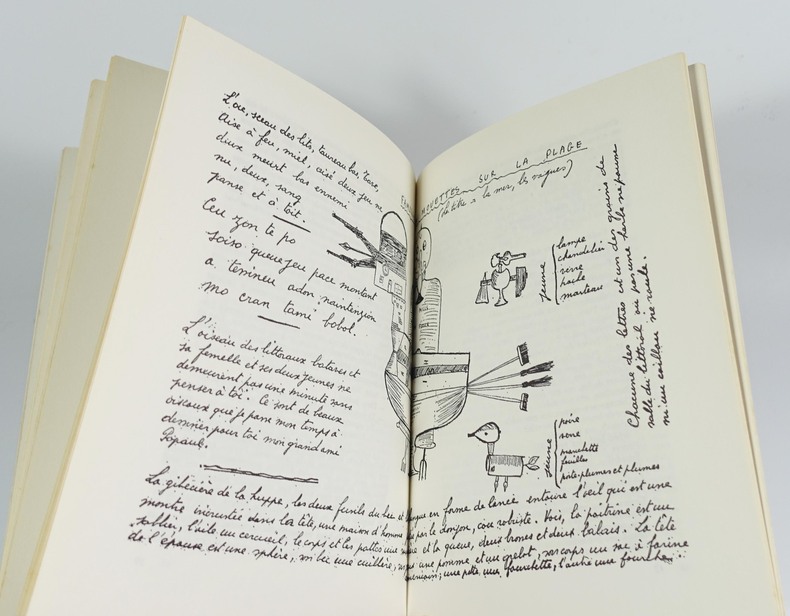 L'oie, sceau des lits, taureau bas, base,
aise à feu, miel, aisé deux jeu ne
diux meurt bas ennemi
nu, deux, sang
panse et à toit.
Ceu zon te po
soiso queue jeu pace montant
a temineu adon naintenzion
mo cran tami bobol.
L'oiseau des littoraux batares et
sa femelle et ses deux jeunes ne
demeurent pas une minute sans
penser à toi. Ce sont de beaux
oiseaux que je passe mon temps à
dessiner pour toi mon grand ami
Popaul.
MOUETTES SUR LA PLAGE
(de titre a la mer, les vagues)
jeune
lampe
chandelier
verre
hache
marteau
jeune
poire
verre
fourchette
feuilles
porte-plumes et plumes
Chacune des lettres et un des grains de
salle du littoral où pas une herbe ne pousse
ni un caillou ne roule.
La gibecière de la huppe, les deux fusils du bec et en forme de lance entoure l'oeil qui est une
montre incrustée dans la tête, une maison d'homme par le donjon, cou robuste. Vois, la poitrine est un
sablier, l'aile un cercueil, le corps et les pattes une et la queue, deux brosses et deux balais. La tête
de l'épouse est une sphère, son bec une cuillère, une pomme et un grelot, son corps un sac à farine
américain; une patte une fourchette, l'autre une fourche